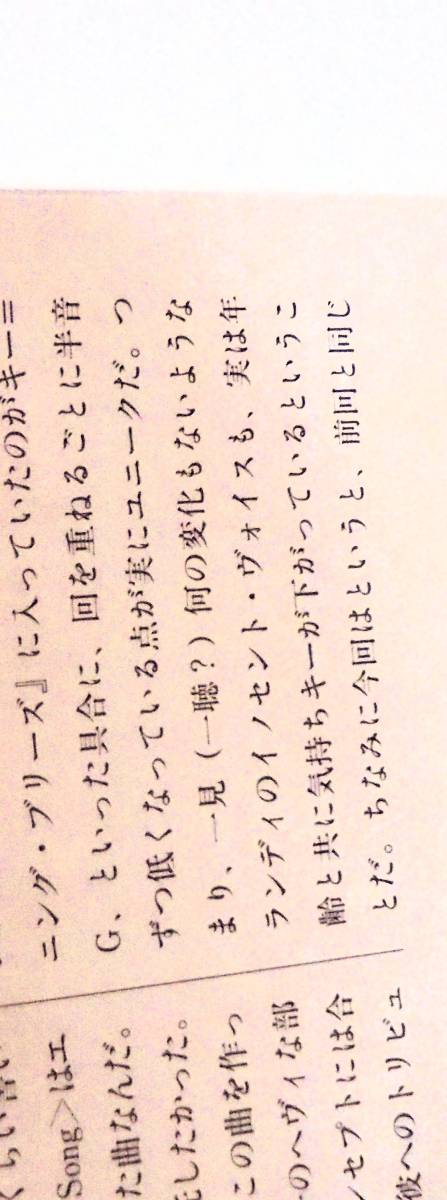 ニング・ブリーズ』に入っていたのがキー＝
G、といった具合に、回を重ねるごとに半音
ずつ低くなっている点が実にユニークだ。つ
まり、一見（一聴？）何の変化もないような
ランディのイノセント・ヴォイスも、実は年
齢と共に気持ちキーが下がっているというこ
とだ。ちなみに今回はというと、前回と同じ
Song＞はエ
た曲なんだ。
したかった。
この曲を作っ
のヘヴィな部
セプトには合
彼へのトリビュ